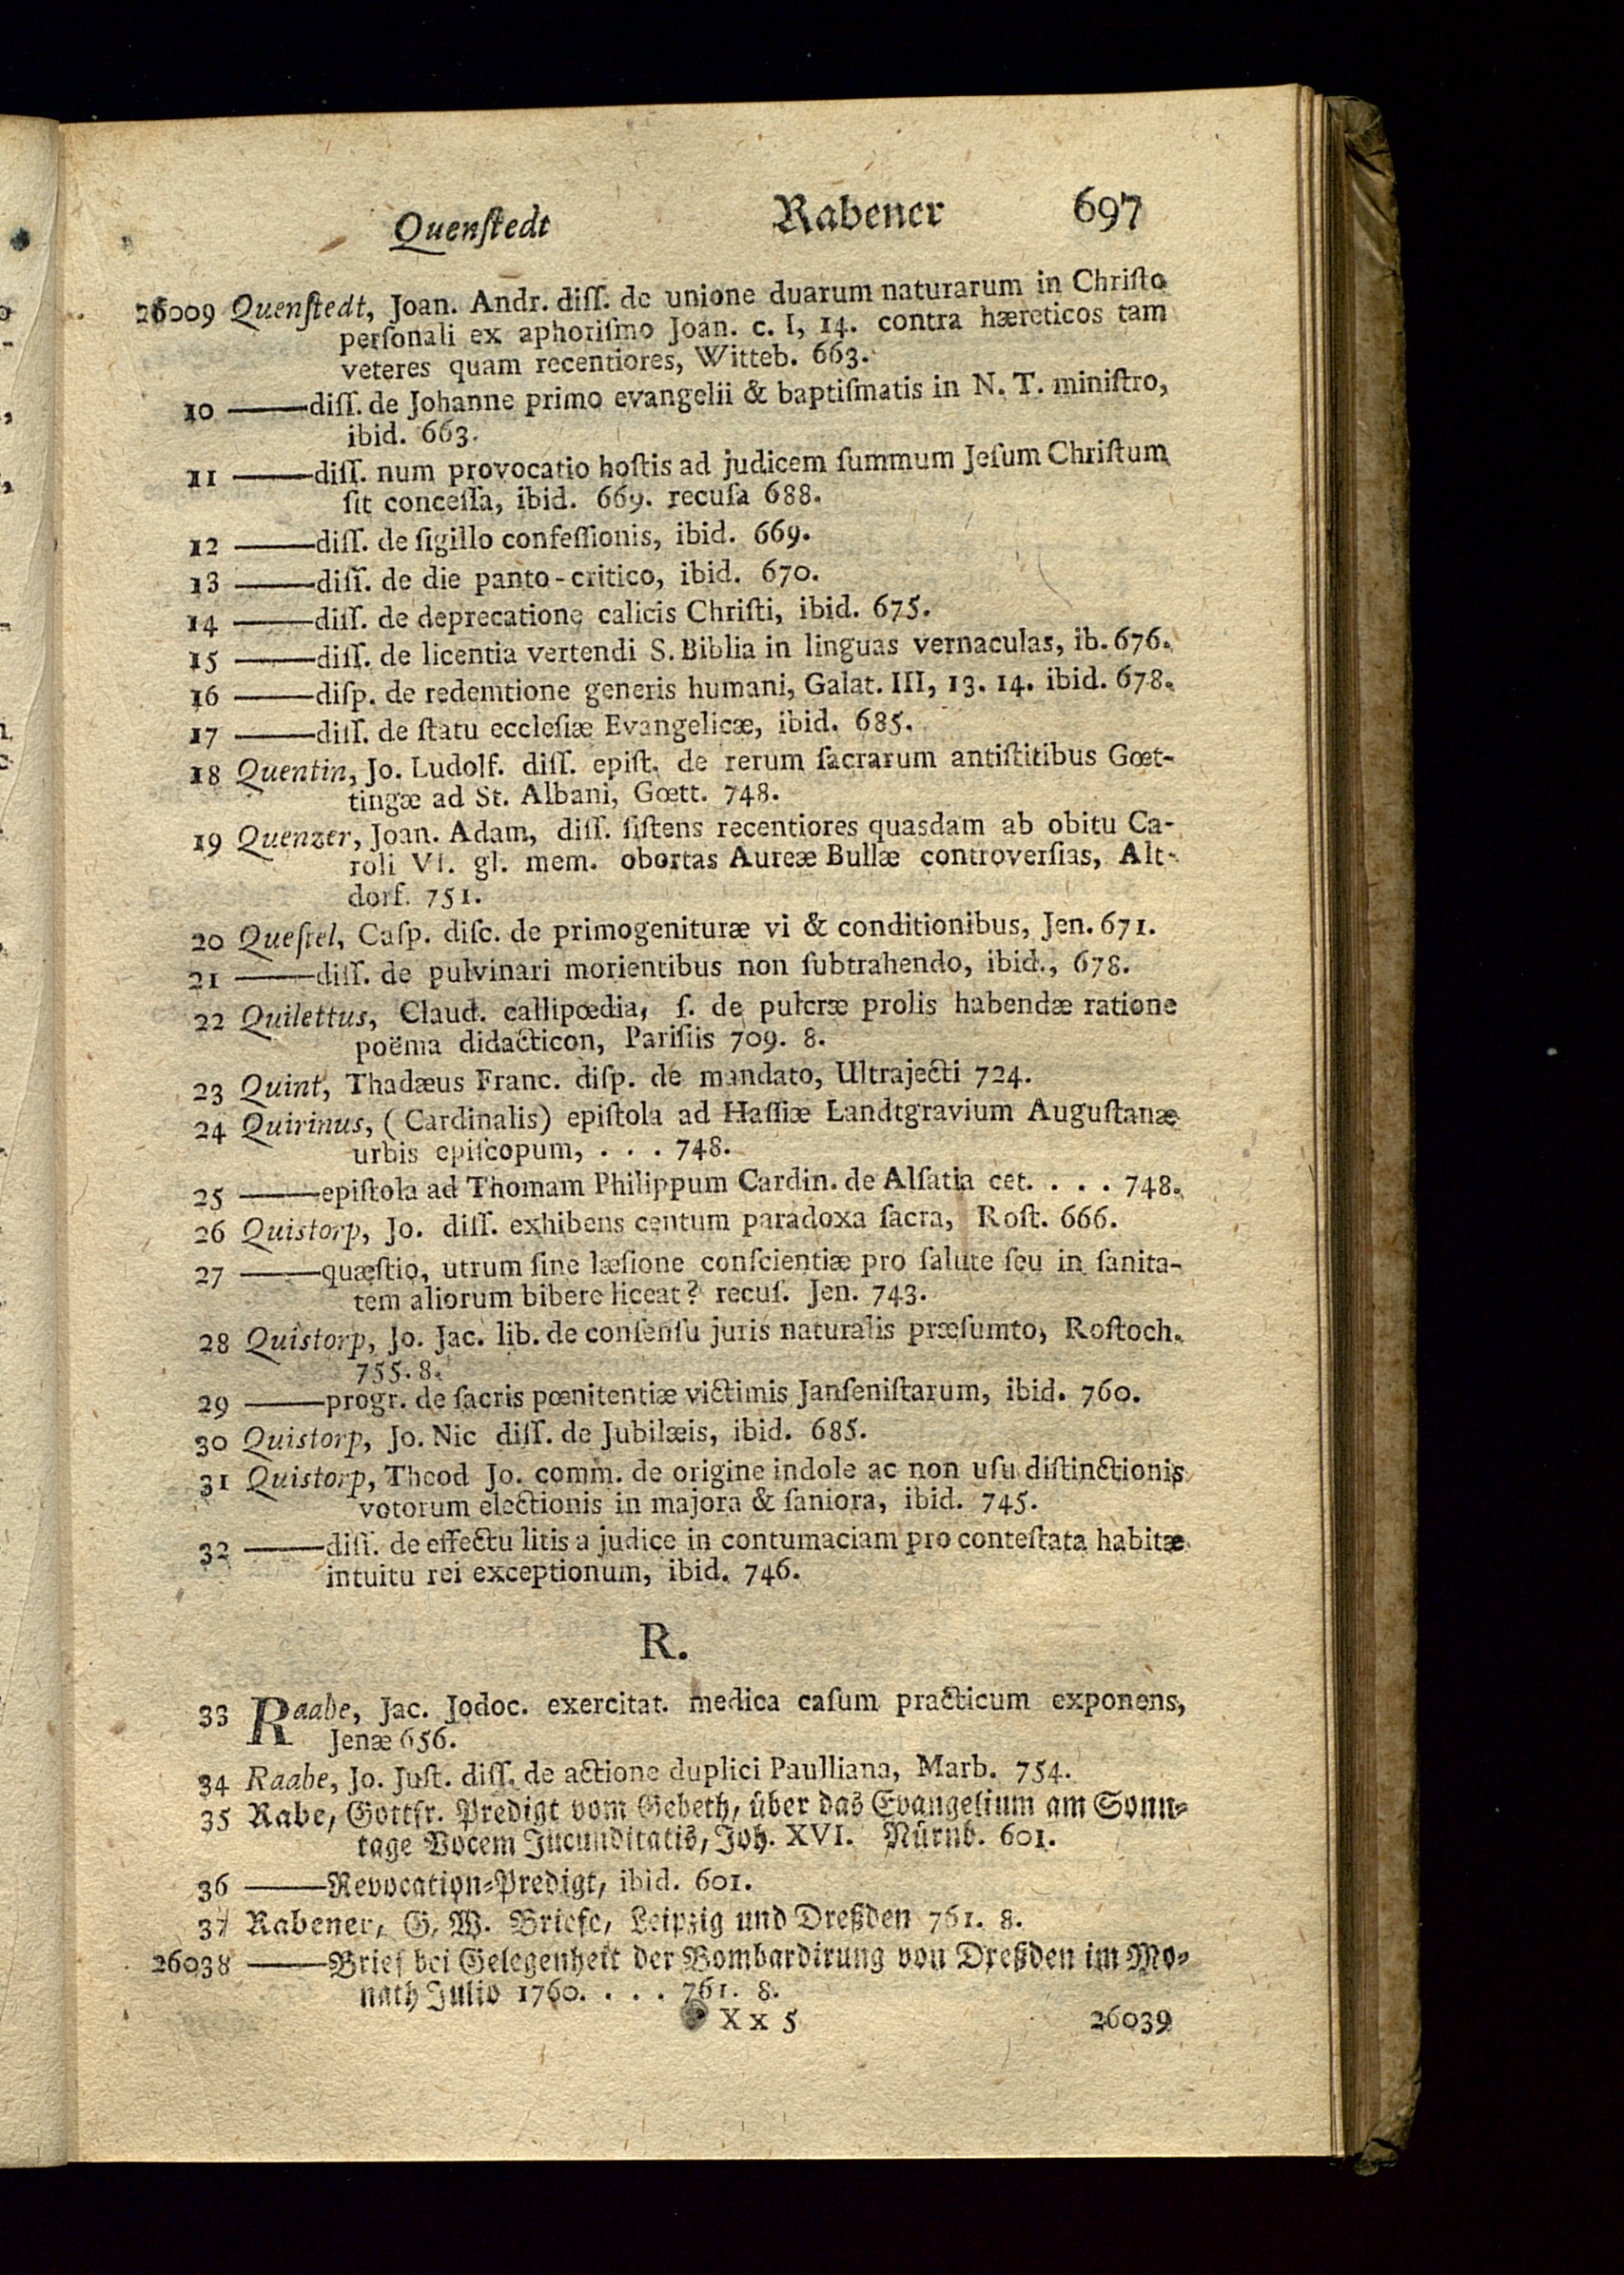 Quenſtedt Rabener 697
26009 Quenſtedt, Joan. Andr. diſſ. de unione duarum naturarum in Chriſto
perſonali ex aphoriſmo Joan. c. I, 14. contra hæreticos tam
veteres quam recentiores, Witteb. 663.
10 —— diſſ. de Johanne primo evangelii & baptiſmatis in N. T. miniſtro,
ibid. 663.
11 —— diſſ. num provocatio hoſtis ad judicem ſummum Jeſum Chriſtum
ſit conceſſa, ibid. 669. recuſa 688.
12 —— diſſ. de ſigillo confeſſionis, ibid. 669.
13 —— diſſ. de die panto-critico, ibid. 670.
14 —— diſſ. de deprecatione calicis Chriſti, ibid. 675.
15 —— diſſ. de licentia vertendi S. Biblia in linguas vernaculas, ib. 676.
16 —— diſp. de redemtione generis humani, Galat. III, 13. 14. ibid. 678.
17 —— diſſ. de ſtatu eccleſiæ Evangelicæ, ibid. 685.
18 Quentin, Jo. Ludolf. diſſ. epiſt. de rerum ſacrarum antiſtitibus Gœt-
tingæ ad St. Albani, Gœtt. 748.
19 Quenzer, Joan. Adam, diſſ. ſiſtens recentiores quasdam ab obitu Ca-
roli VI. gl. mem. obortas Aureæ Bullæ controverſias, Alt-
dorf. 751.
20 Queſtel, Caſp. diſc. de primogenituræ vi & conditionibus, Jen. 671.
21 —— diſſ. de pulvinari morientibus non ſubtrahendo, ibid., 678.
22 Quilettus, Claud. callipœdia, ſ. de pulcræ prolis habendæ ratione
poëma didacticon, Pariſiis 709. 8.
23 Quint, Thadæus Franc. diſp. de mandato, Ultrajecti 724.
24 Quirinus, (Cardinalis) epiſtola ad Haſſiæ Landtgravium Auguſtanæ
urbis epiſcopum, . . . 748.
25 —— epiſtola ad Thomam Philippum Cardin. de Alſatia cet. . . . 748.
26 Quistorp, Jo. diſſ. exhibens centum paradoxa ſacra, Roſt. 666.
27 —— quæſtio, utrum ſine læſione conſcientiæ pro ſalute ſeu in ſanita-
tem aliorum bibere liceat? recuſ. Jen. 743.
28 Quistorp, Jo. Jac. lib. de conſenſu juris naturalis præſumto, Roſtoch.
755. 8.
29 —— progr. de ſacris pœnitentiæ victimis Janſeniſtarum, ibid. 760.
30 Quistorp, Jo. Nic diſſ. de Jubilæis, ibid. 685.
31 Quistorp, Theod Jo. comm. de origine indole ac non uſu diſtinctionis
votorum electionis in majora & ſaniora, ibid. 745.
32 —— diſſ. de effectu litis a judice in contumaciam pro conteſtata habitæ
intuitu rei exceptionum, ibid. 746.
R.
33 Raabe, Jac. Jodoc. exercitat. medica caſum practicum exponens,
Jenæ 656.
34 Raabe, Jo. Juſt. diſſ. de actione duplici Paulliana, Marb. 754.
35 Rabe, Gottfr. Predigt vom Gebeth, über das Evangelium am Sonn-
tage Vocem Jucunditatis, Joh. XVI. Nürnb. 601.
36 —— Revocation-Predigt, ibid. 601.
37 Rabener, G. W. Briefe, Leipzig und Dreßden 761. 8.
26038 —— Brief bei Gelegenheit der Bombardirung von Dreßden im Mo-
nath Julio 1760. . . . 761. 8.
X x 5 26039